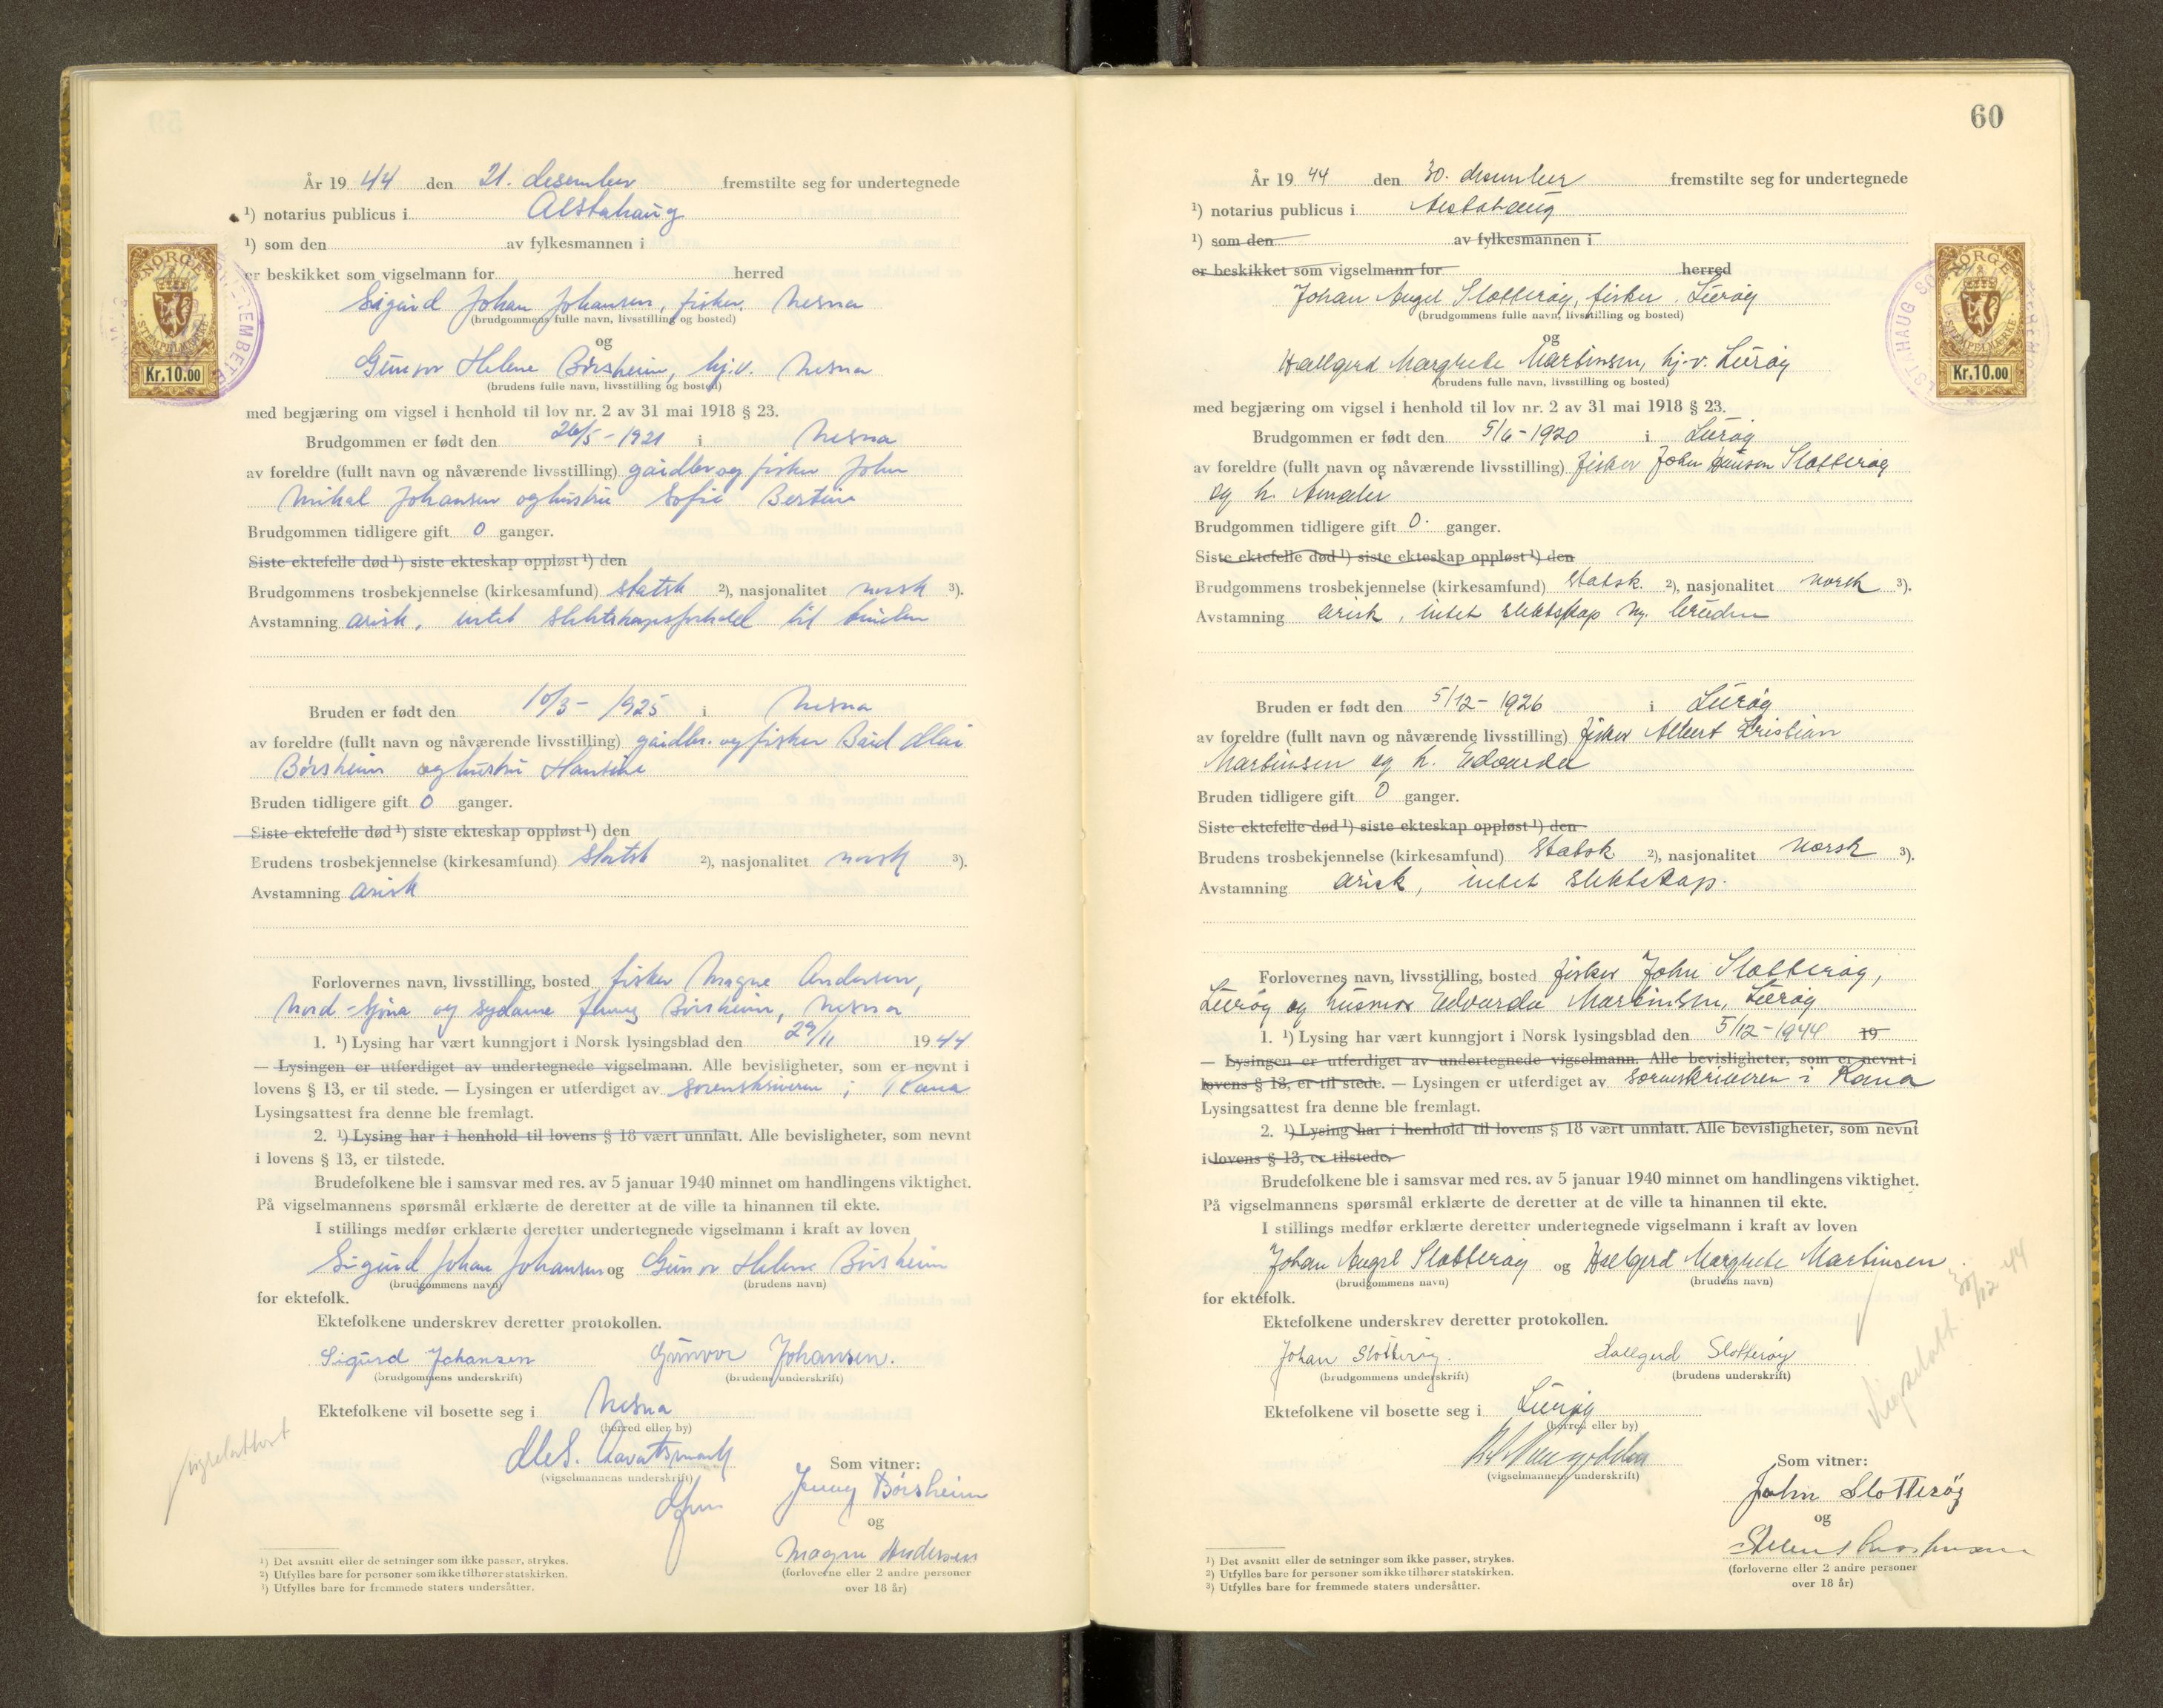 År 19 44 den 21. desember fremstilte seg for undertegnede
¹) notarius publicus i Alstahaug
¹) som den av fylkesmannen i
er beskikket som vigselmann for herred
Sigurd Johan Johansen, fisker, Nesna
(brudgommens fulle navn, livsstilling og bosted)
og
Gunvor Helene Börsheim, hj.v. Nesna
(brudens fulle navn, livsstilling og bosted)
NORGE
STEMPELMERKE
Kr.10.00
med begjæring om vigsel i henhold til lov nr. 2 av 31 mai 1918 § 23.
Brudgommen er født den 26/5 - 1921 i Nesna
av foreldre (fullt navn og nåværende livsstilling) gårdbr og fisker John
Mikal Johansen og hustru Sofie Bertine
Brudgommen tidligere gift 0 ganger.
Siste ektefelle død ¹) siste ekteskap oppløst ¹) den
Brudgommens trosbekjennelse (kirkesamfund) statsk ²), nasjonalitet norsk ³).
Avstamning arisk, intet slektskapsforhold til bruden
Bruden er født den 10/3 - 1925 i Nesna
av foreldre (fullt navn og nåværende livsstilling) gårdbr. og fisker Bård
Börsheim og hustru Hansine
Bruden tidligere gift 0 ganger.
Siste ektefelle død ¹) siste ekteskap oppløst ¹) den
Brudens trosbekjennelse (kirkesamfund) statsk ²), nasjonalitet norsk ³).
Avstamning arisk
Forlovernes navn, livsstilling, bosted fisker Magne Andersen,
Nord-Sjona og sydame Jenny Börsheim, Nesna
1. ¹) Lysing har vært kunngjort i Norsk lysingsblad den 29/11 1944
— Lysingen er utferdiget av undertegnede vigselmann. Alle bevisligheter, som er nevnt i
lovens § 13, er til stede. — Lysingen er utferdiget av sorenskriveren i Rana
Lysingsattest fra denne ble fremlagt.
2. ¹) Lysing har i henhold til lovens § 18 vært unnlatt. Alle bevisligheter, som nevnt
i lovens § 13, er tilstede.
Brudefolkene ble i samsvar med res. av 5 januar 1940 minnet om handlingens viktighet.
På vigselmannens spørsmål erklærte de deretter at de ville ta hinannen til ekte.
I stillings medfør erklærte deretter undertegnede vigselmann i kraft av loven
Sigurd Johan Johansen og Gunvor Helene Börsheim
(brudgommens navn) (brudens navn)
for ektefolk.
Ektefolkene underskrev deretter protokollen.
Sigurd Johansen Gunvor Johansen.
(brudgommens underskrift) (brudens underskrift)
Ektefolkene vil bosette seg i Nesna
(herred eller by)
(vigselmannens underskrift)
Som vitner:
Jenny Börsheim
og
Magne Andersen
(forloverne eller 2 andre personer
over 18 år)
vigselattest
¹) Det avsnitt eller de setninger som ikke passer, strykes.
²) Utfylles bare for personer som ikke tilhører statskirken.
³) Utfylles bare for fremmede staters undersåtter.
60
År 19 44 den 30. desember fremstilte seg for undertegnede
¹) notarius publicus i Alstahaug
¹) som den av fylkesmannen i
er beskikket som vigselmann for herred
Johan Angel Slotterøy, fisker, Lurøy
(brudgommens fulle navn, livsstilling og bosted)
og
Hallgerd Margrete Martinsen, hj.v. Lurøy
(brudens fulle navn, livsstilling og bosted)
NORGE
STEMPELMERKE
Kr.10.00
med begjæring om vigsel i henhold til lov nr. 2 av 31 mai 1918 § 23.
Brudgommen er født den 5/6 - 1920 i Lurøy
av foreldre (fullt navn og nåværende livsstilling) fisker John Slotterøy
og h.
Brudgommen tidligere gift 0. ganger.
Siste ektefelle død ¹) siste ekteskap oppløst ¹) den
Brudgommens trosbekjennelse (kirkesamfund) statsk. ²), nasjonalitet norsk ³).
Avstamning arisk, intet slektskap m. bruden
Bruden er født den 5/12 - 1926 i Lurøy
av foreldre (fullt navn og nåværende livsstilling) fisker Albert Kristian
Martinsen og h. Edvarda
Bruden tidligere gift 0 ganger.
Siste ektefelle død ¹) siste ekteskap oppløst ¹) den
Brudens trosbekjennelse (kirkesamfund) statsk ²), nasjonalitet norsk ³).
Avstamning arisk, intet slektskap.
Forlovernes navn, livsstilling, bosted fisker John Slotterøy,
Lurøy og husmor Edvarda Martinsen, Lurøy
1. ¹) Lysing har vært kunngjort i Norsk lysingsblad den 5/12 - 1944 19
— Lysingen er utferdiget av undertegnede vigselmann. Alle bevisligheter, som er nevnt i
lovens § 13, er til stede. — Lysingen er utferdiget av sorenskriveren i Rana
Lysingsattest fra denne ble fremlagt.
2. ¹) Lysing har i henhold til lovens § 18 vært unnlatt. Alle bevisligheter, som nevnt
i lovens § 13, er tilstede.
Brudefolkene ble i samsvar med res. av 5 januar 1940 minnet om handlingens viktighet.
På vigselmannens spørsmål erklærte de deretter at de ville ta hinannen til ekte.
I stillings medfør erklærte deretter undertegnede vigselmann i kraft av loven
Johan Angel Slotterøy og Hallgerd Margrete Martinsen
(brudgommens navn) (brudens navn)
for ektefolk.
Ektefolkene underskrev deretter protokollen.
Johan Slotterøy. Hallgerd Slotterøy
(brudgommens underskrift) (brudens underskrift)
Ektefolkene vil bosette seg i Lurøy
(herred eller by)
(vigselmannens underskrift)
Som vitner:
John Slotterøy
og
(forloverne eller 2 andre personer
over 18 år)
Vigselatt. 30/12 44
¹) Det avsnitt eller de setninger som ikke passer, strykes.
²) Utfylles bare for personer som ikke tilhører statskirken.
³) Utfylles bare for fremmede staters undersåtter.